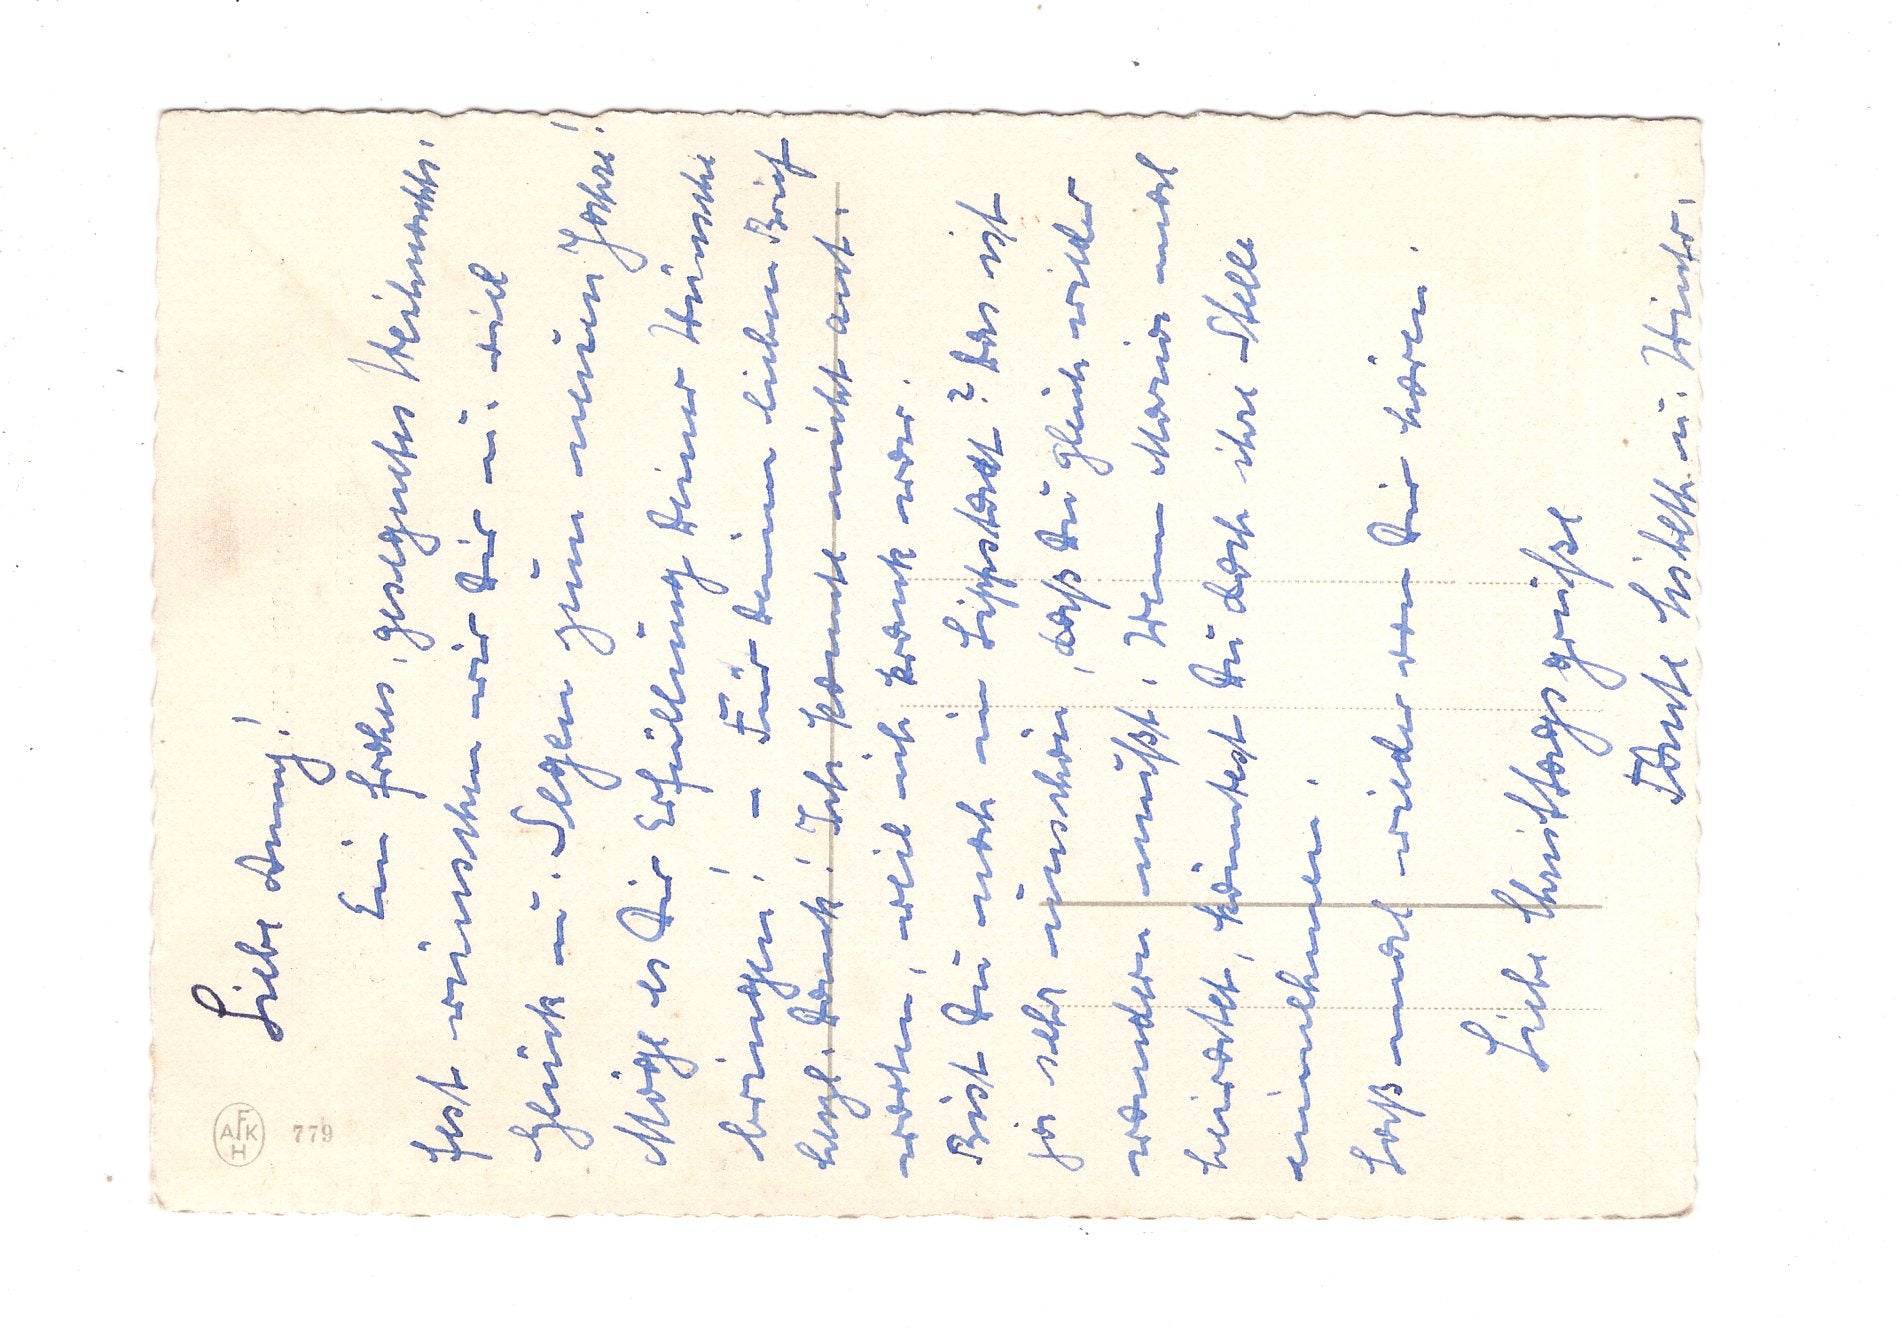 Liebe Anny!
Ein frohes, gesegnetes Weihnachts-
fest wünschen wir Dir u. viel
Glück u. Segen zum neuen Jahre!
Möge es Dir Erfüllung Deiner Wünsche
bringen! – Für Deinen lieben Brief
herzl. Dank! Ich konnte nicht ant-
worten, weil ich krank war.
Bist Du noch in Lippstadt? Das ist
ja sehr unschön, daß Du gleich wieder
wandern mußt. Wenn Maria mal
heiratet, könntest Du doch ihre Stelle
einnehmen.
Laß mal wieder von Dir hören.
Liebe Christtagsgrüße
Tante Lisbeth u.
AFKH
779